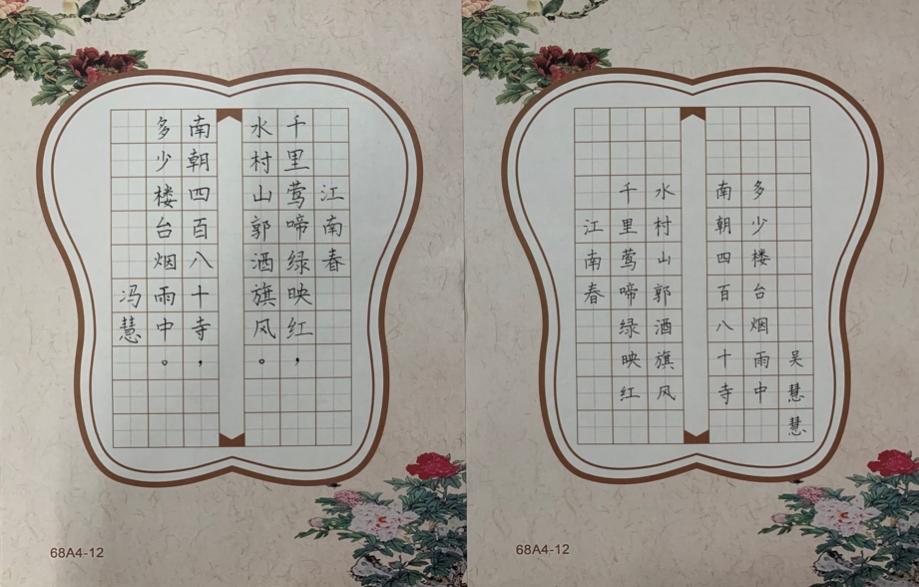 江南春
千里莺啼绿映红，
水村山郭酒旗风。
南朝四百八十寺，
多少楼台烟雨中。
冯慧
68A4-12
江南春
千里莺啼绿映红
水村山郭酒旗风
南朝四百八十寺
多少楼台烟雨中
吴慧慧
68A4-12